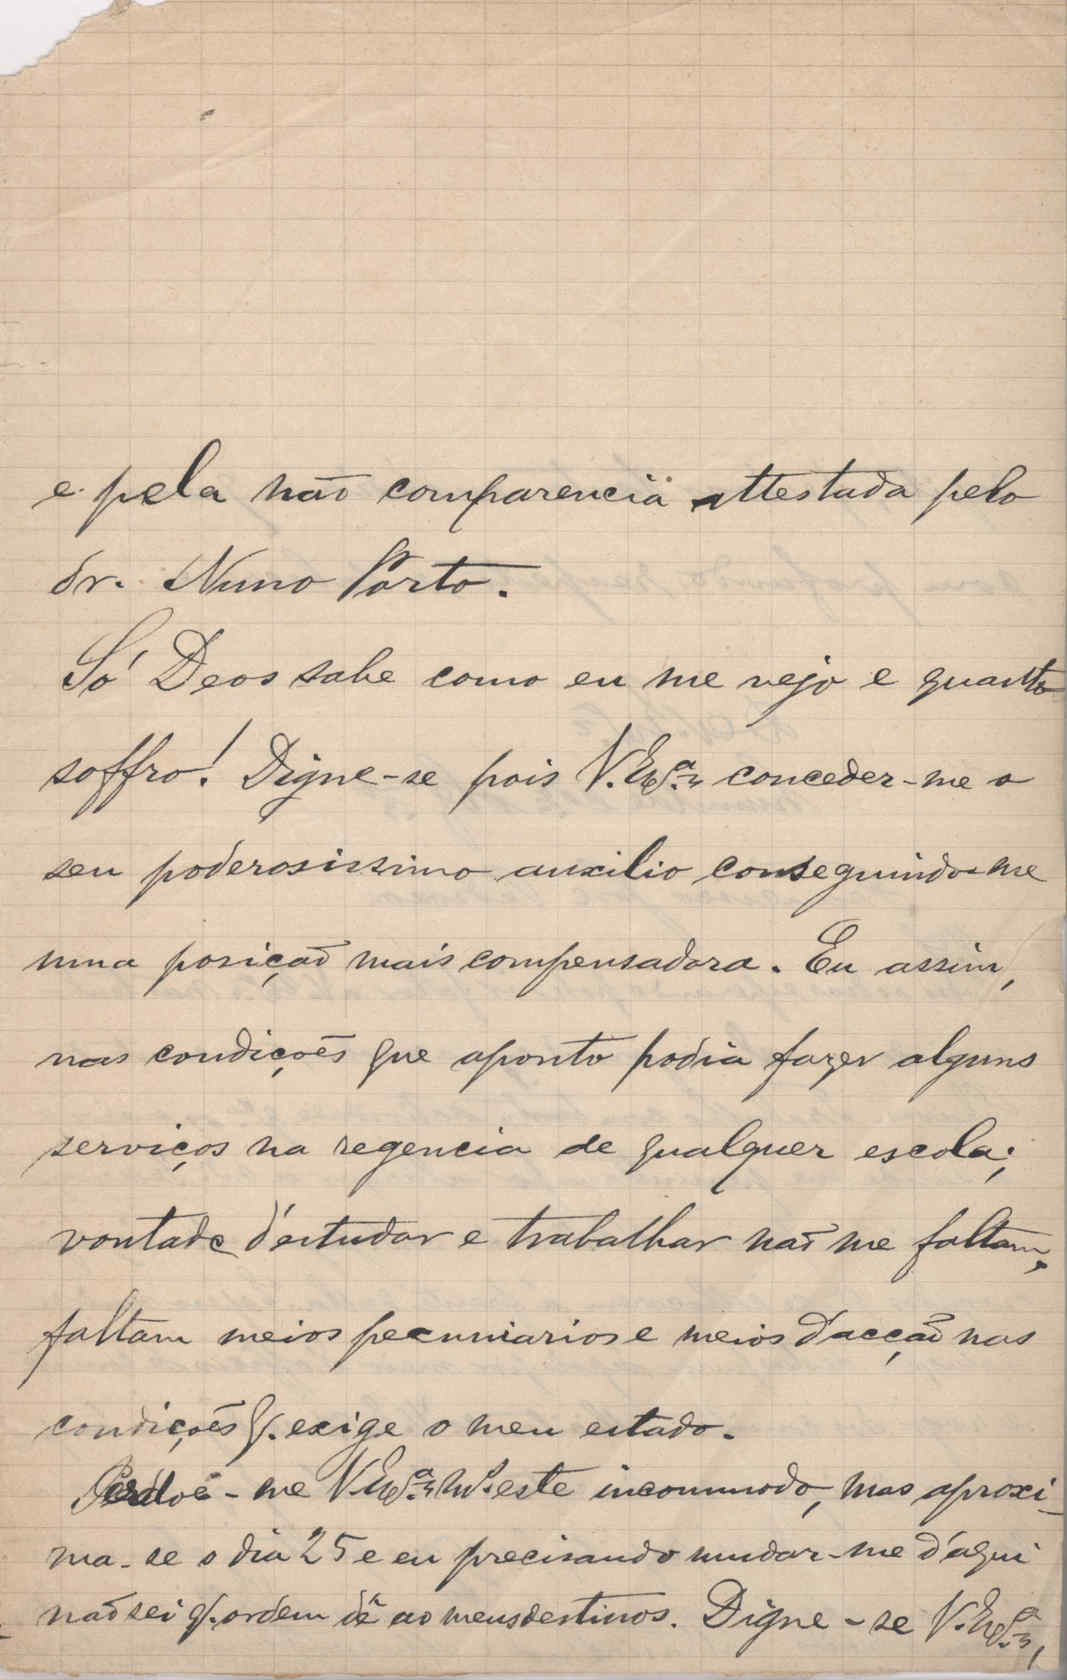 e pela não comparencia attestada pelo
dr. Nuno Porto.
Só Deos sabe como eu me vejo e quanto
soffro! Digne-se pois V. Exª conceder-me o
seu poderosissimo auxilio conseguindo-me
uma posição mais compensadora. Eu assim,
nas condições que aponto podia fazer alguns
serviços na regencia de qualquer escola;
vontade d'estudar e trabalhar não me faltam,
faltam meios pecuniarios e meios d'acção nas
condições q. exige o meu estado.
Perdoe-me V. Exª este incommodo, mas aproxi-
ma-se o dia 25 e eu precisando mudar-me d'aqui
não sei q. ordem dê ao meus destinos. Digne-se V. Exª,